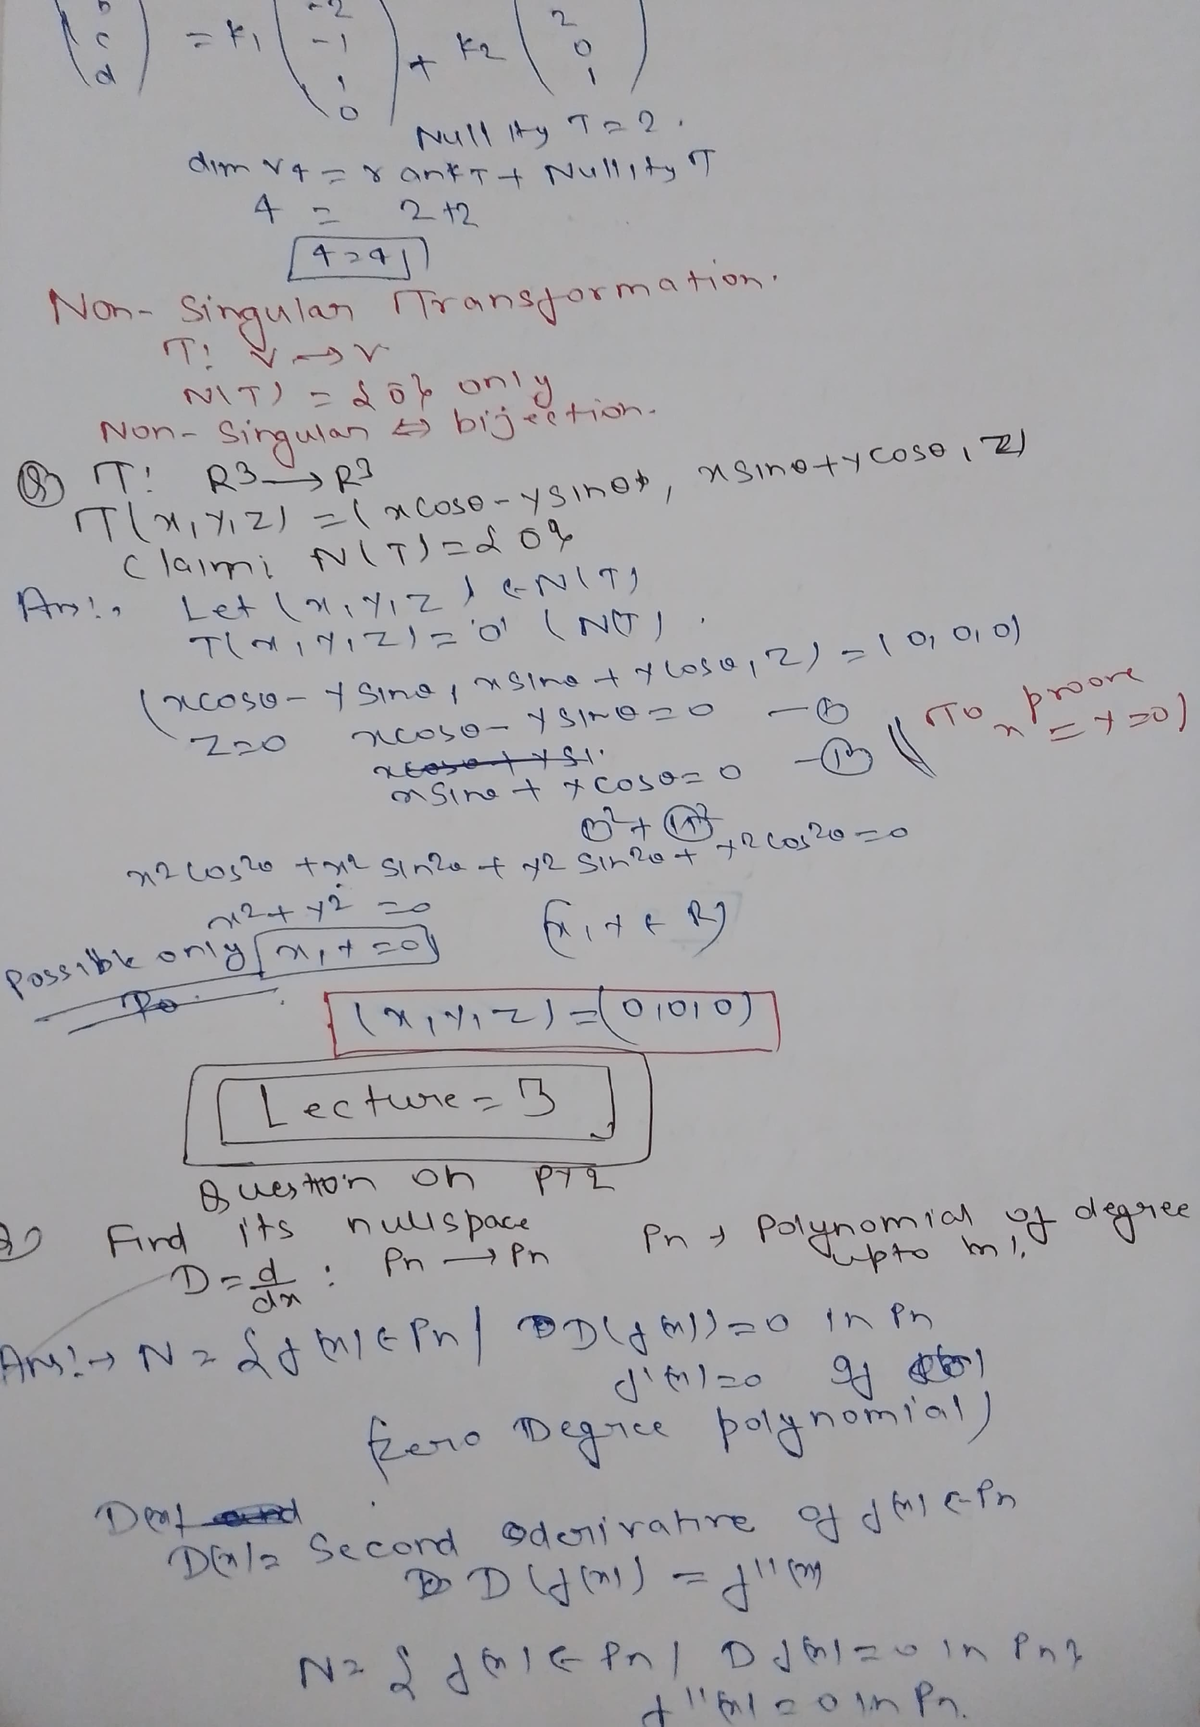 c = k1 -1 + k2 0
d 1 1
0
Nullity T = 2.
dim V4 = rank T + Nullity T
4 = 2+2
4=4
Non-Singular Transformation.
T: V → V
N(T) = {0} only
Non-Singular ⇔ bijection.
Q) T: R3 → R3
T(x,y,z) = (xcosθ - ysinθ, xsinθ+ycosθ, z)
Claim: N(T) = {0}
Ans:→ Let (x,y,z) ∈ N(T)
T(x,y,z) = '0' (N(T).
(xcosθ - ysinθ, xsinθ + ycosθ, z) = (0,0,0)
z=0 xcosθ - ysinθ = 0 - (I)
xsinθ + ycosθ = 0 - (II) (To proove x = y = 0)
(I)² + (II)²
x2cos2θ + x2 sin2θ + y2 sin2θ + y2cos2θ = 0
x2 + y2 = 0 (x,y ∈ R)
Possible only x,y = 0
(x,y,z) = (0,0,0)
Lecture = 3
Question on
Q) Find its nullspace Pn → Polynomial of degree upto n.
D = d/dx : Pn → Pn
Ans:→ N = {f(x) ∈ Pn | D(f(x)) = 0 in Pn
f'(x) = 0 of
(zero Degree polynomial)
D(x)
D(x) = Second derivative of f(x) ∈ Pn
D(f(x)) = f''(x)
N = {f(x) ∈ Pn | D f(x) = 0 in Pn}
f''(x) = 0 in Pn.